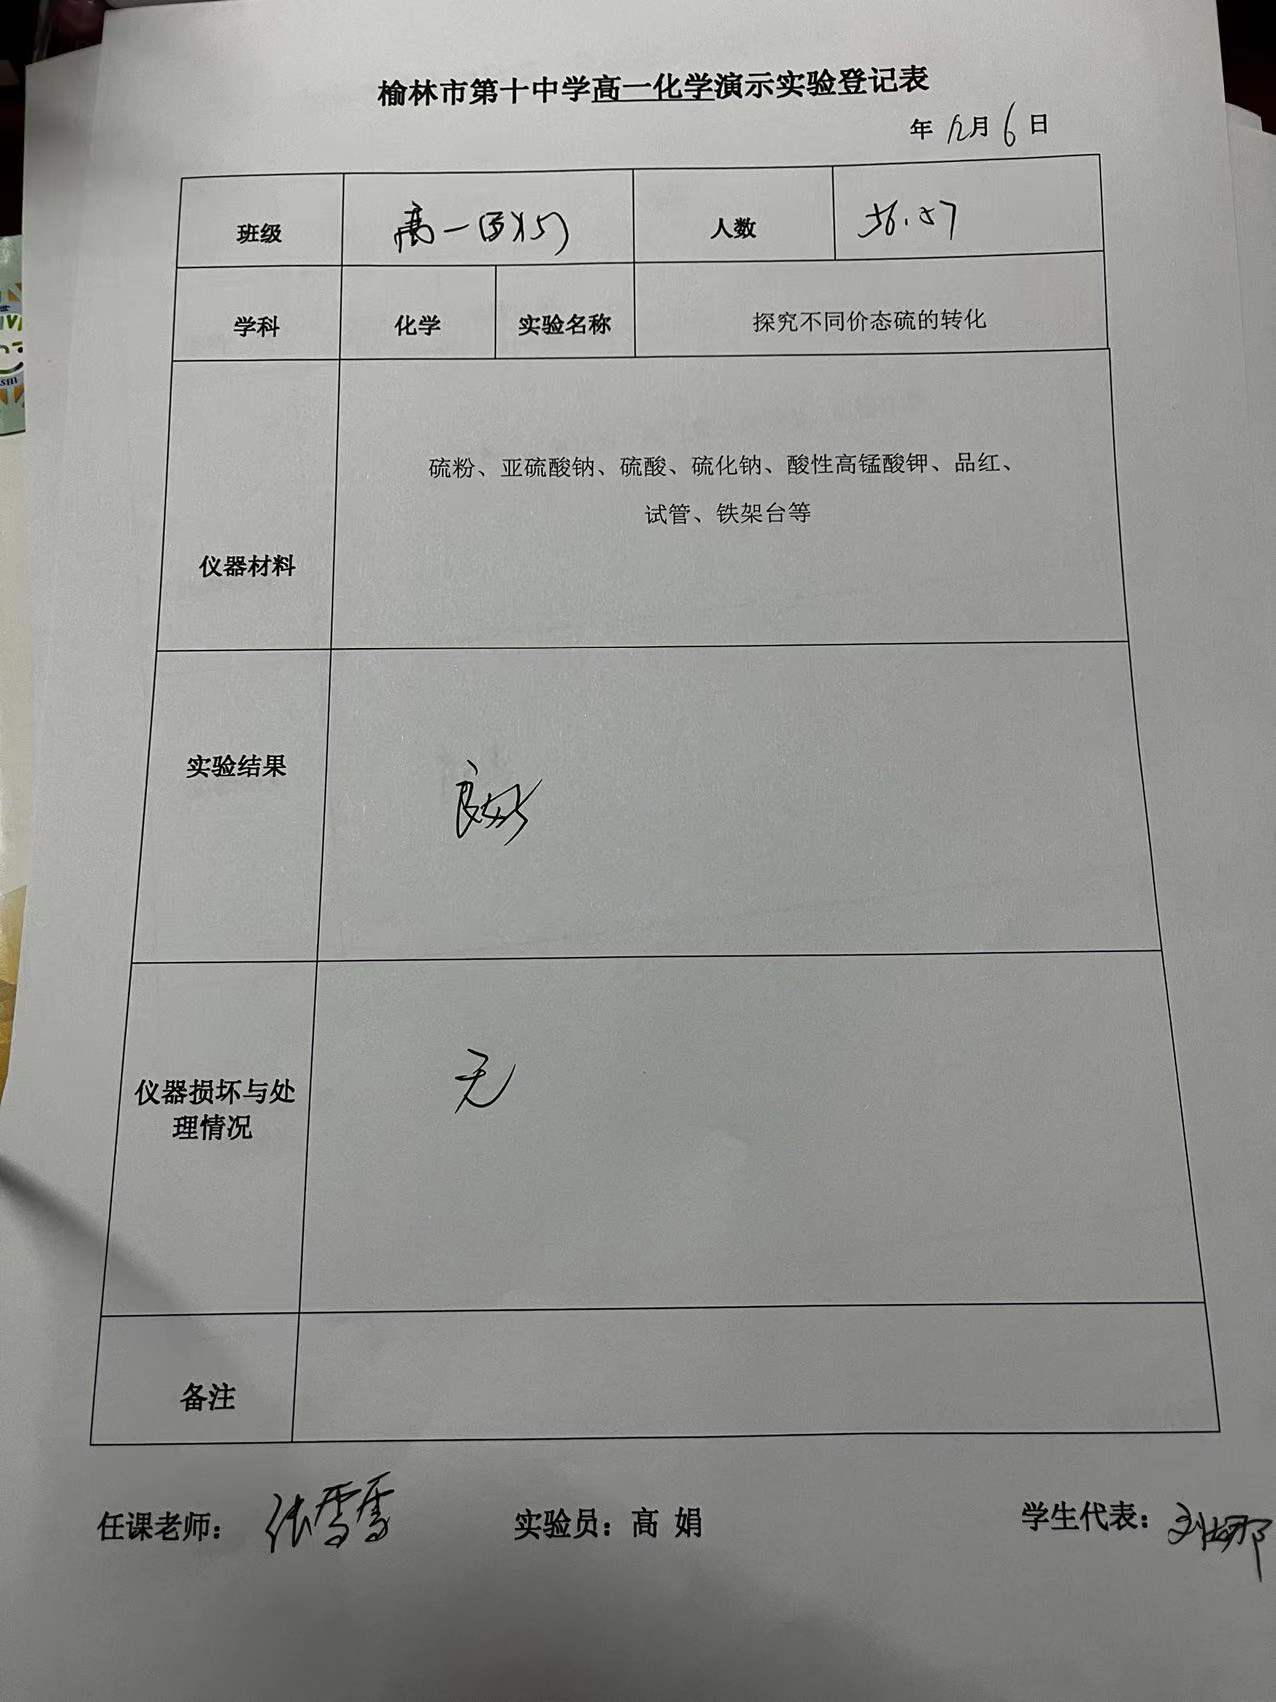 榆林市第十中学高一化学演示实验登记表
年 12月 6 日
班级 高一(3)(5) 人数 56.57
学科 化学 实验名称 探究不同价态硫的转化
仪器材料
硫粉、亚硫酸钠、硫酸、硫化钠、酸性高锰酸钾、品红、
试管、铁架台等
实验结果 良好
仪器损坏与处
理情况
无
备注
任课老师： 张雪雪 实验员：高 娟 学生代表：刘娜